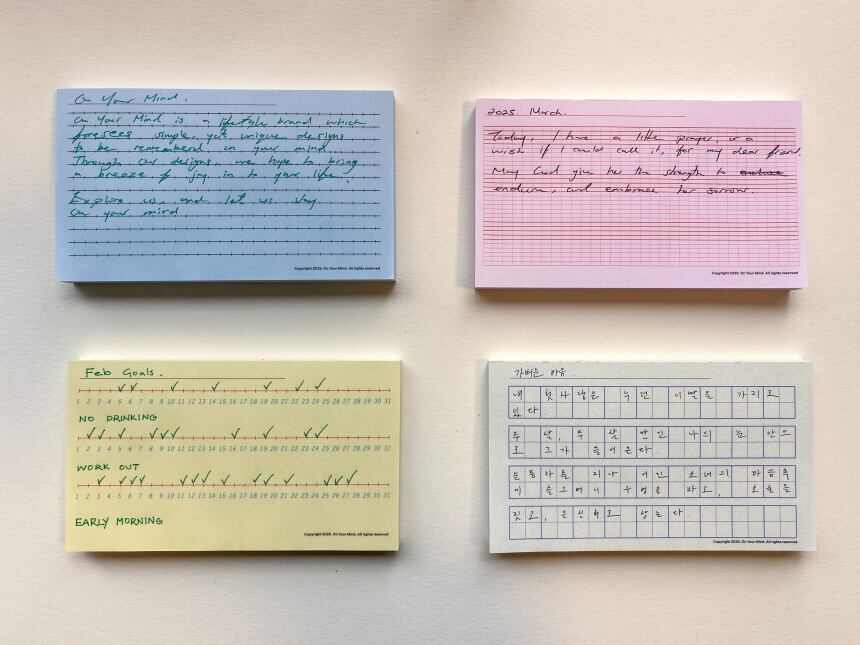 On Your Mind.
On Your Mind is a lifestyle brand which
foresees simple, yet unique designs
to be rememberd in your mind.
Through our designs, we hope to bring
a breeze of joy in to your life.
Explore us, and let us stay
on your mind.
Copyright 2025. On Your Mind. All rights reserved
2025. March.
Today, I have a little prayer, or a
wish if I could call it, for my dear friend.
May God give her the strength to endure
endure, and embrace her sorrow.
Copyright 2025. On Your Mind. All rights reserved
Feb Goals.
1 2 3 4 5 6 7 8 9 10 11 12 13 14 15 16 17 18 19 20 21 22 23 24 25 26 27 28 29 30 31
NO DRINKING
1 2 3 4 5 6 7 8 9 10 11 12 13 14 15 16 17 18 19 20 21 22 23 24 25 26 27 28 29 30 31
WORK OUT
1 2 3 4 5 6 7 8 9 10 11 12 13 14 15 16 17 18 19 20 21 22 23 24 25 26 27 28 29 30 31
EARLY MORNING
Copyright 2025. On Your Mind. All rights reserved
가벼운 마음.
내 첫사랑은 누런 이빨을 가리고
있다
두 달, 두 달 반만 나의 눈 안으
로 그가 들어온다.
눈동자를 지나 소녀의 마음속
에
짓고, 은신처로 삼는다.
Copyright 2025. On Your Mind. All rights reserved